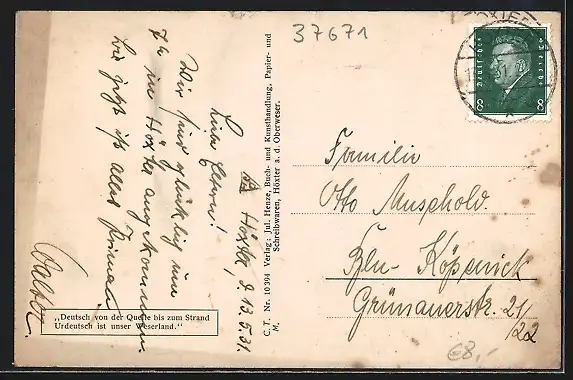 37671
HÖXTER
Deutsches Reich
8 8
Höxter, d. 13.5.31.
Liebe Eltern!
Wir sind glücklich um
7 h in Höxter angekommen.
Bis jetzt ist alles prima
Walter.
Familie
Otto Muschold
Bln-Köpenick
Grünauerstr. 21/22
C. T. Nr. 10394 Verlag: Jul. Henze, Buch- und Kunsthandlung, Papier- und
M. Schreibwaren, Höxter a. d. Oberweser.
„Deutsch von der Quelle bis zum Strand
Urdeutsch ist unser Weserland."
€8,-